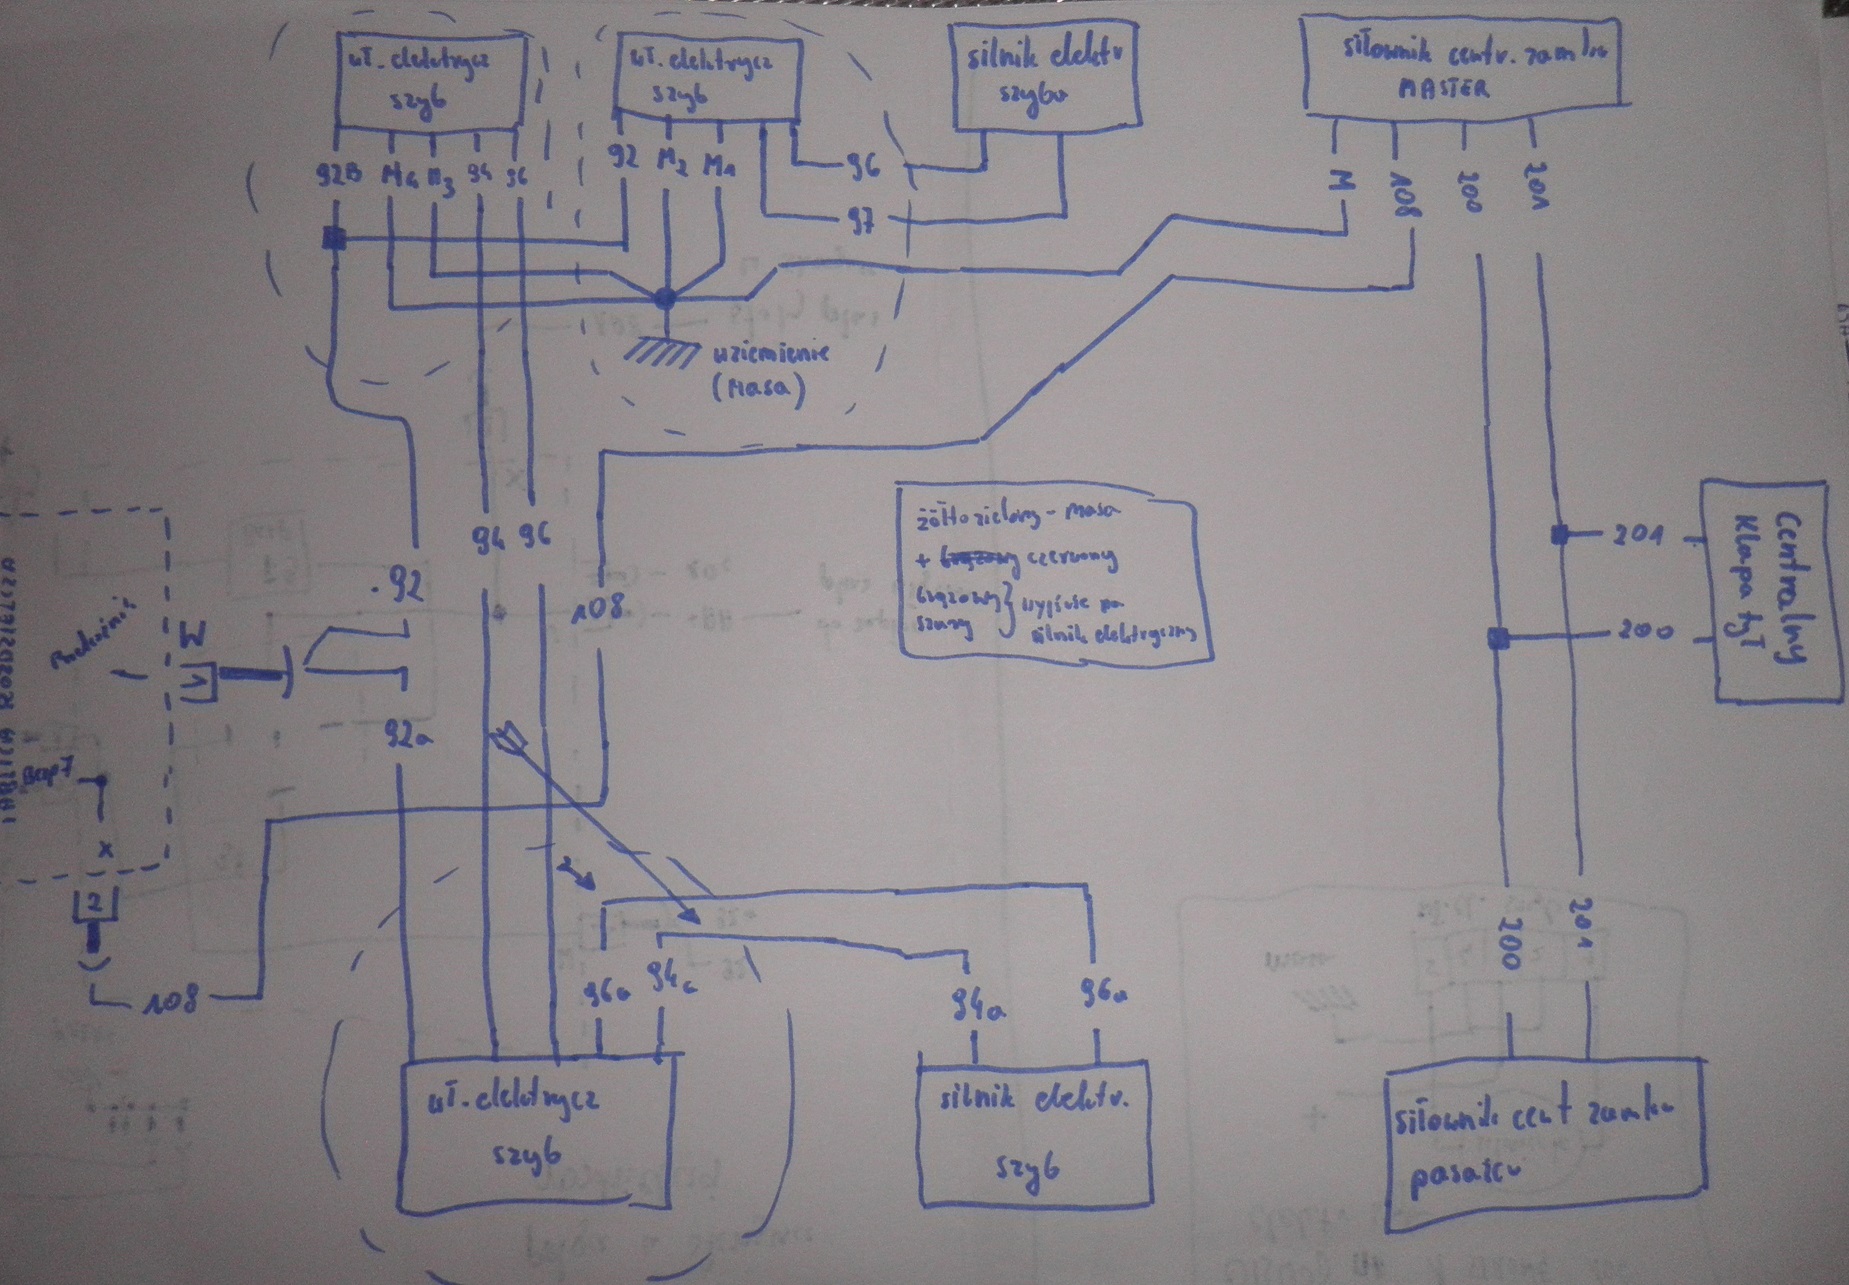 uł. elektrycz
szyb
uł. elektrycz
szyb
silnik elektr
szyba
siłownik centr. zamku
MASTER
92B
M4
M3
94
96
92
M2
M1
96
97
M
108
200
201
uziemienie
(Masa)
żółtozielony - masa
+ brązowy czerwony
brązowy } wyjście na
szary silnik elektryczny
94
96
.92
108
201
200
Centralny
Klapa tył
M
1
92a
TABLICA ROZDZIELCZA
x
2
108
96a
94a
94a
96a
200
201
uł. elektrycz
szyb
silnik elektr.
szyb
siłownik cent zamku
pasażer